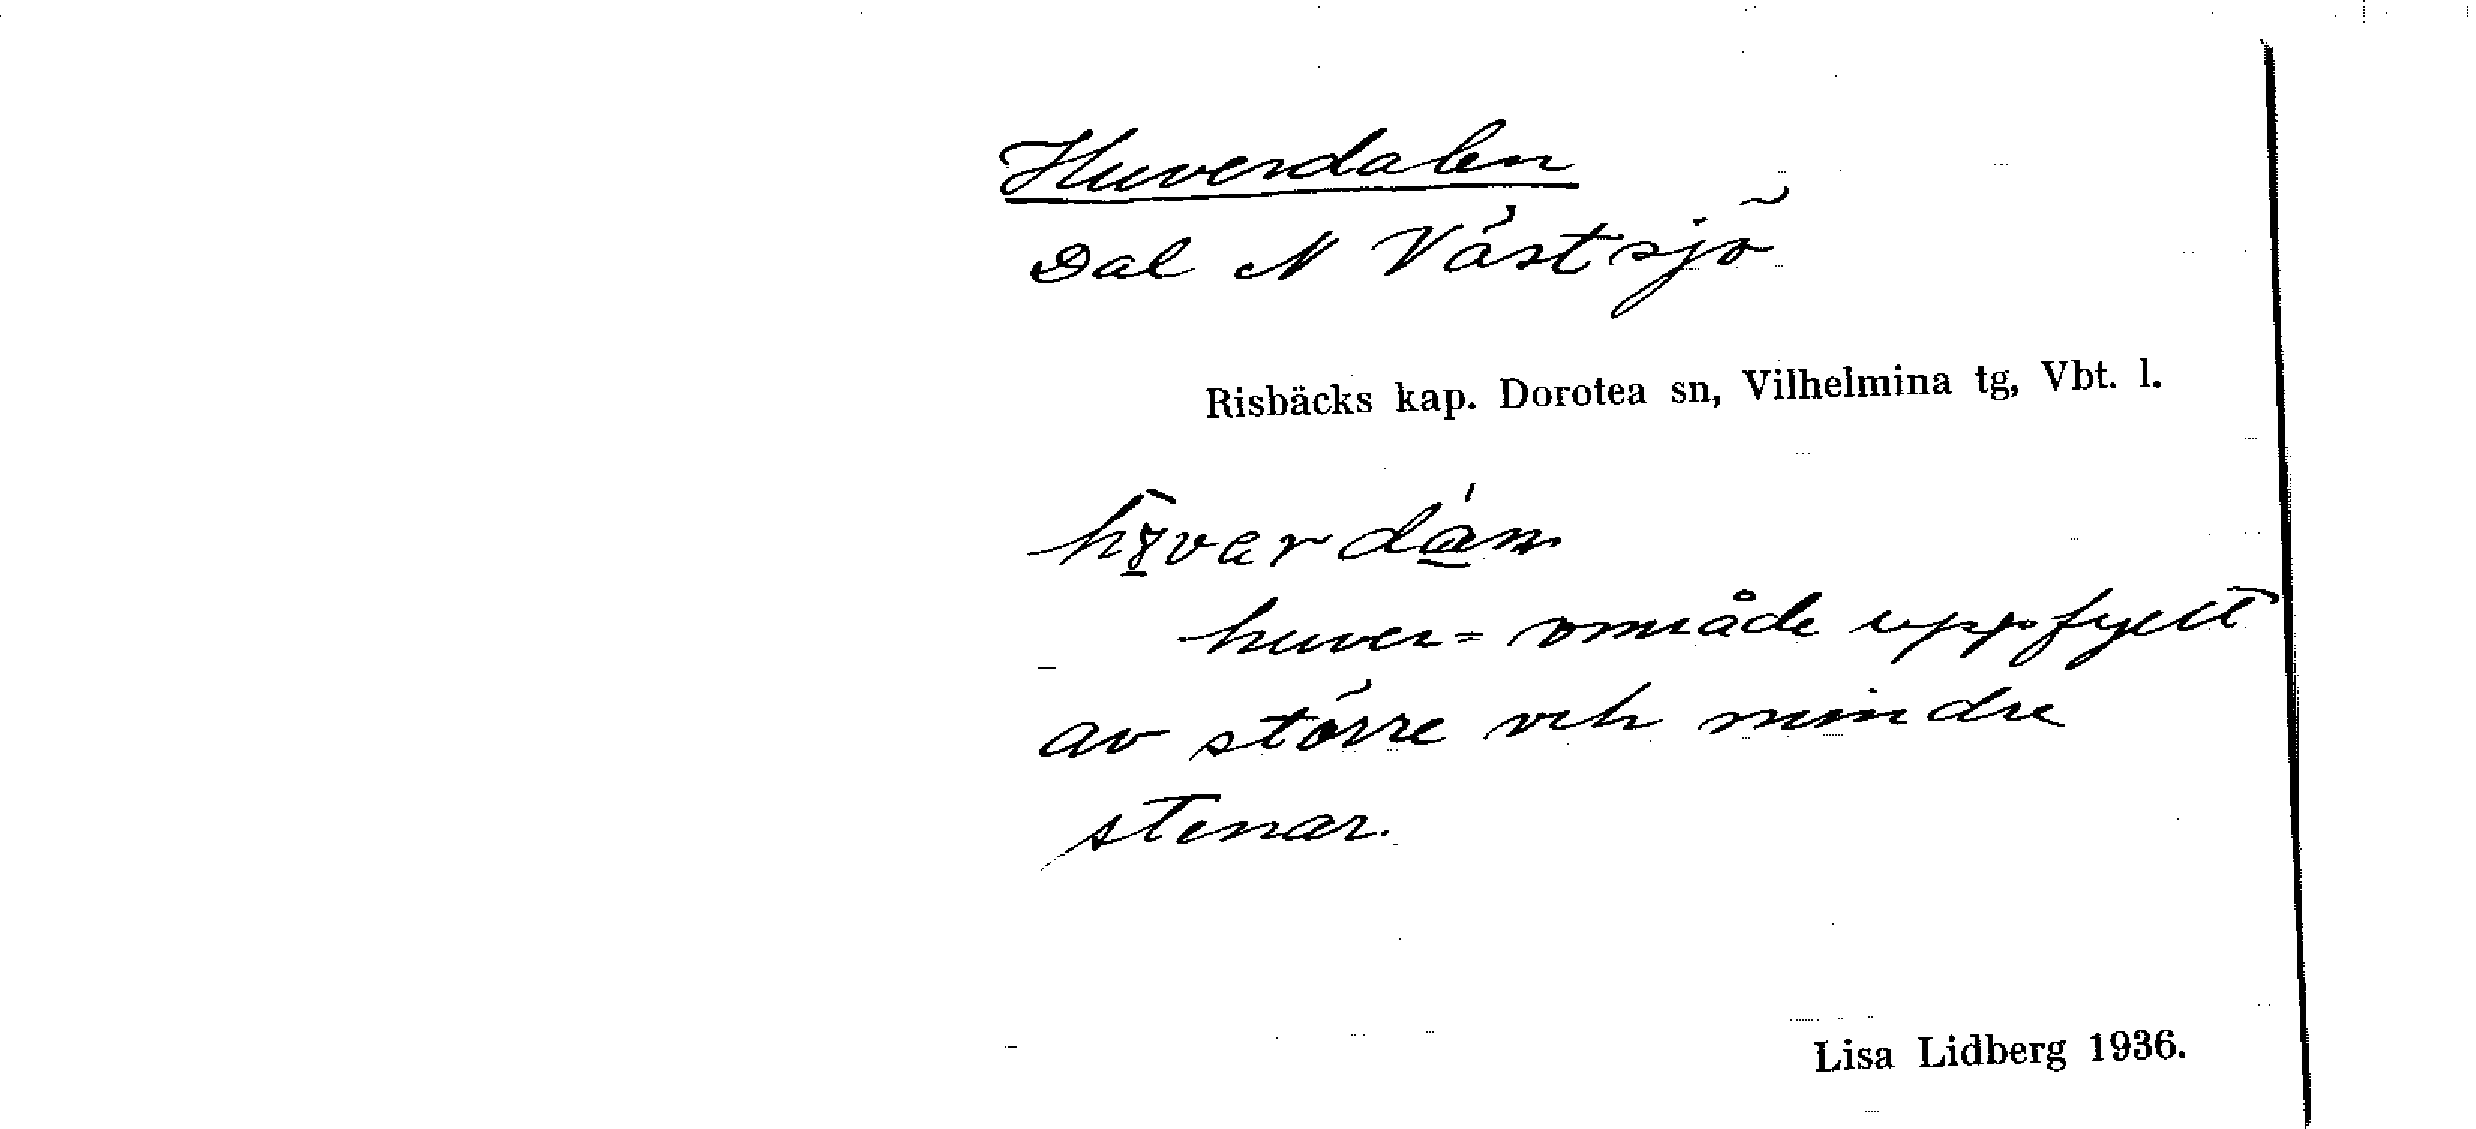 Huverdalen
Dal N Västsjö
Risbäcks kap. Dorotea sn, Vilhelmina tg, Vbt. l.
huver = område uppfyllt
av större och mindre
stenar.
Lisa Lidberg 1936.